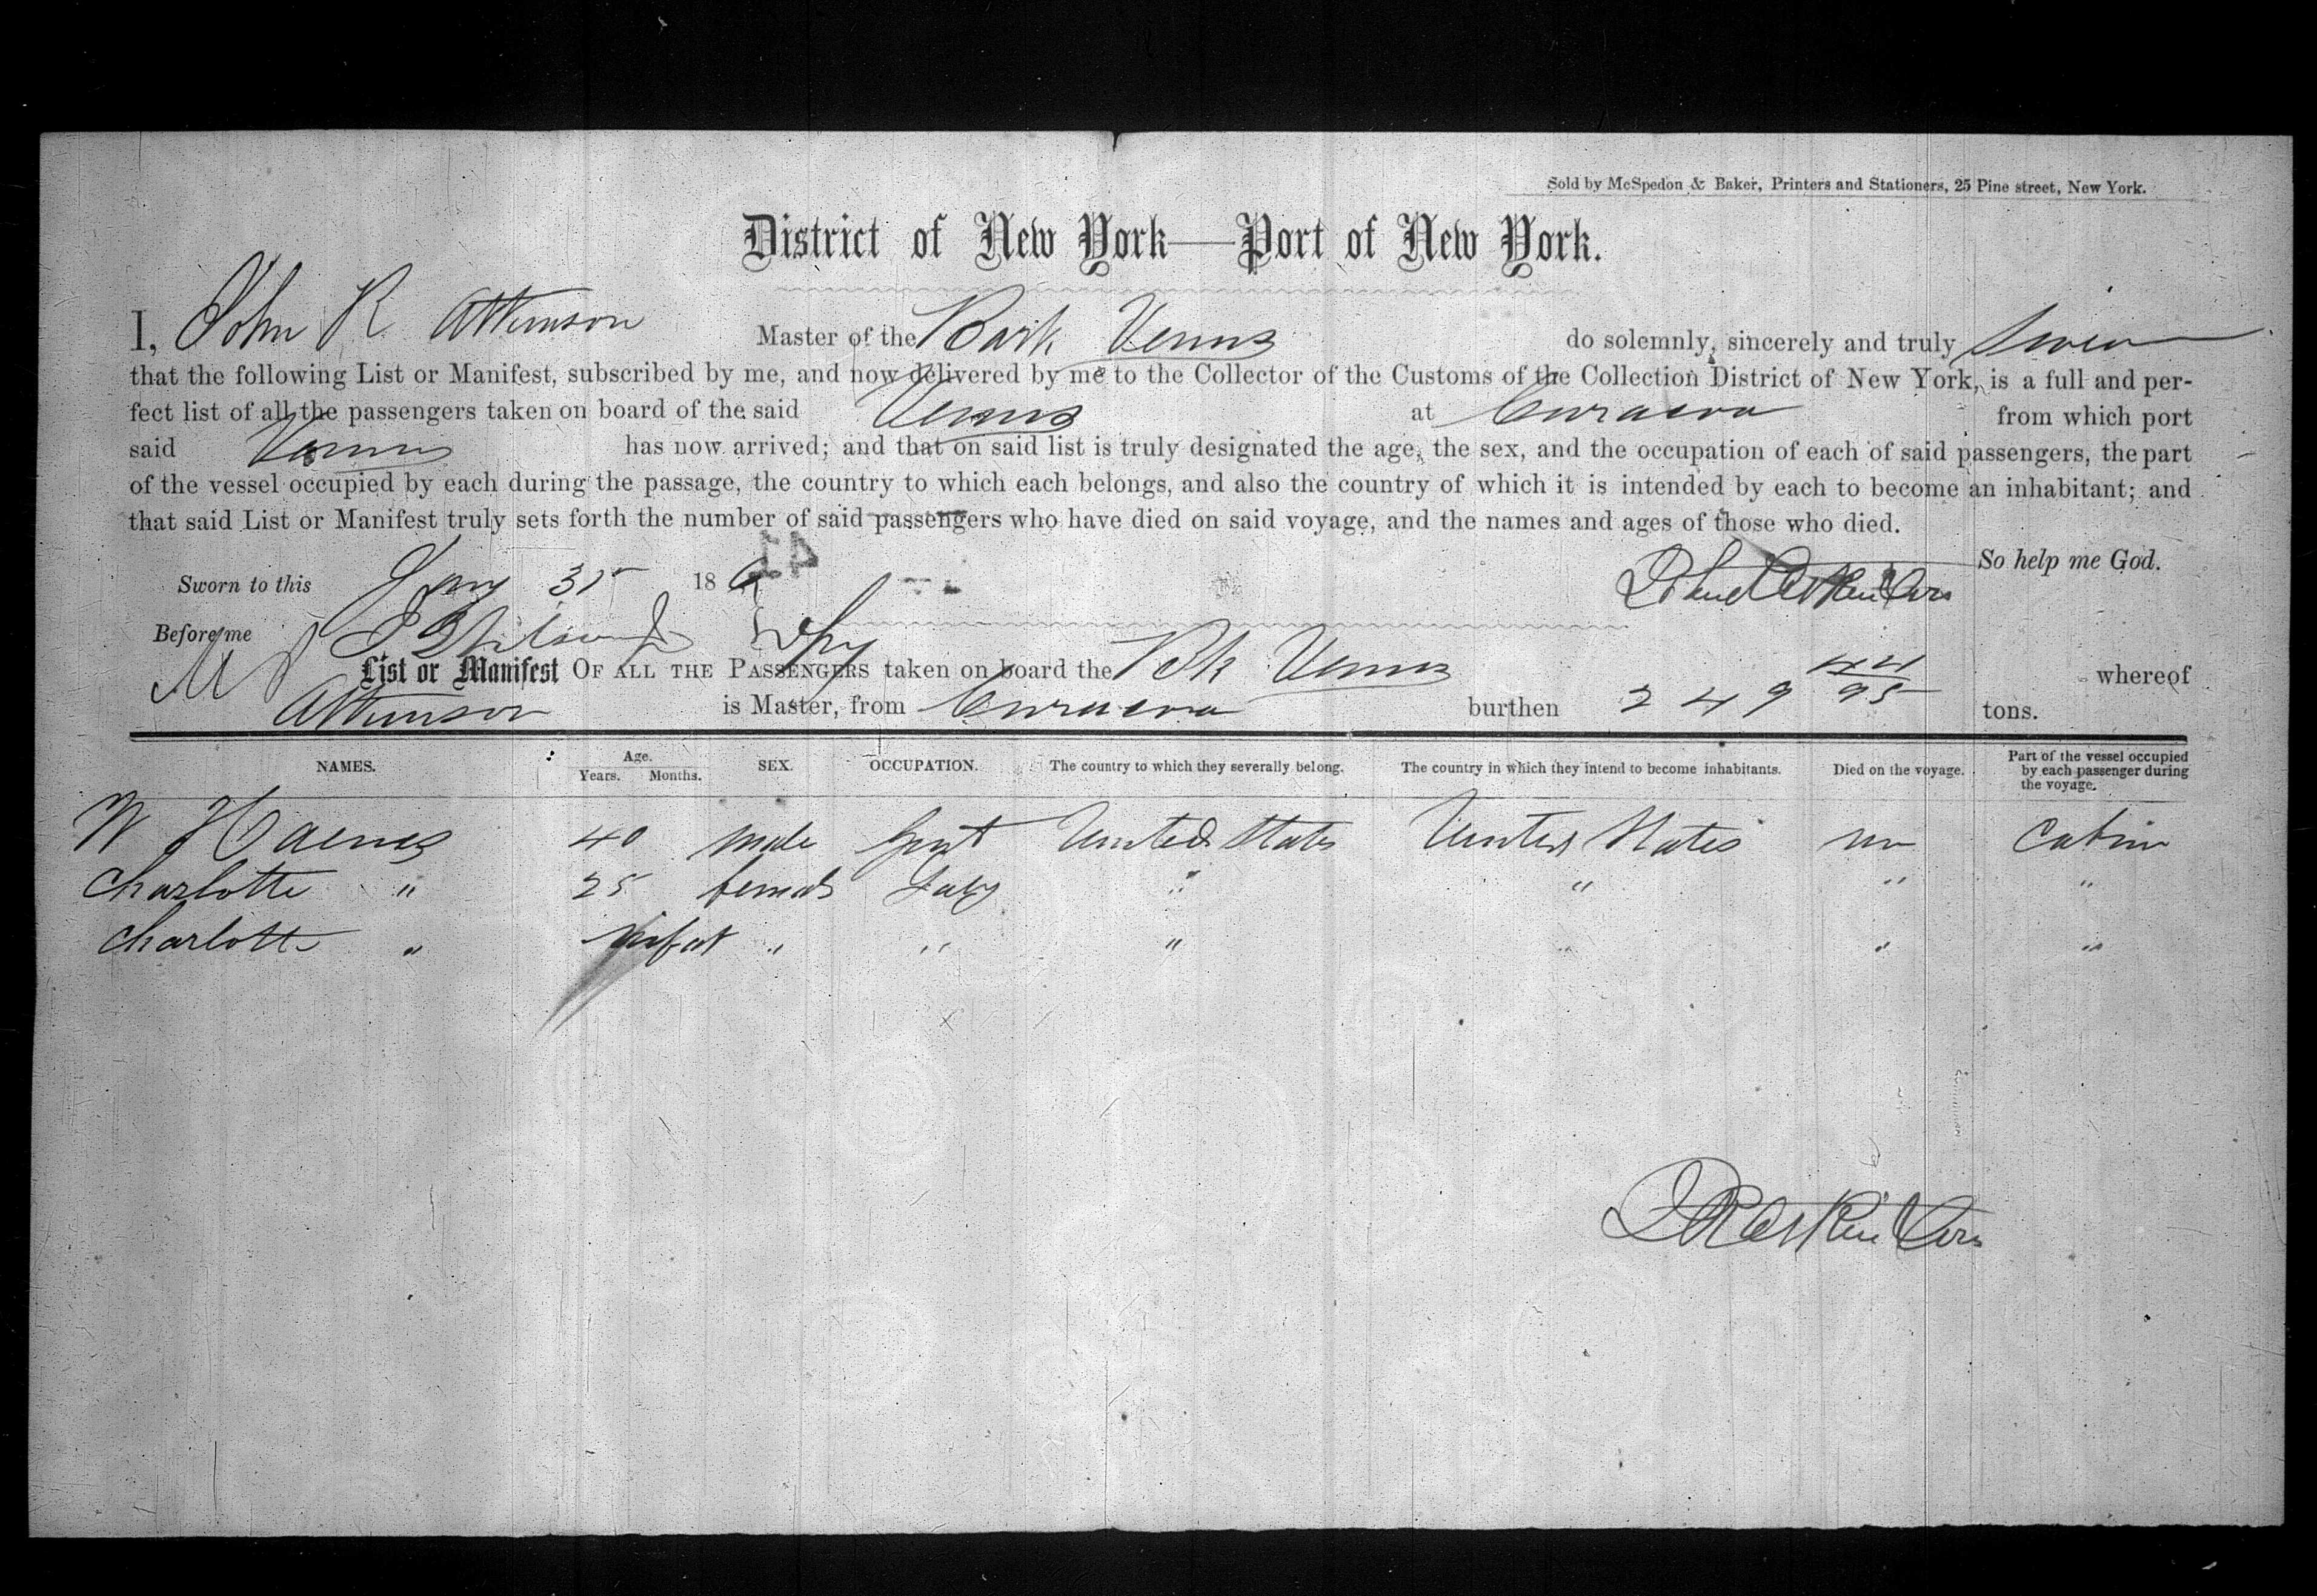 Sold by McSpedon & Baker, Printers and Stationers, 25 Pine street, New York.
District of New York—Port of New York.
I, John R Atkinson Master of the Bark Venus do solemnly, sincerely and truly swear
that the following List or Manifest, subscribed by me, and now delivered by me to the Collector of the Customs of the Collection District of New York, is a full and per-
fect list of all the passengers taken on board of the said Venus at Curacoa from which port
said Venus has now arrived; and that on said list is truly designated the age, the sex, and the occupation of each of said passengers, the part
of the vessel occupied by each during the passage, the country to which each belongs, and also the country of which it is intended by each to become an inhabitant; and
that said List or Manifest truly sets forth the number of said passengers who have died on said voyage, and the names and ages of those who died.
So help me God.
Sworn to this Jany 186
41
Before me
List or Manifest OF ALL THE PASSENGERS taken on board the Bk Venus whereof
Atkinson is Master, from Curacoa burthen 249 44/95 tons.
NAMES. Age. Years. Months. SEX. OCCUPATION. The country to which they severally belong. The country in which they intend to become inhabitants. Died on the voyage. Part of the vessel occupied by each passenger during the voyage.
W Haines 40 male Gent United States United States no Cabin
Charlotte " 25 female Lady " " " "
Charlotte " infat " " " " " "